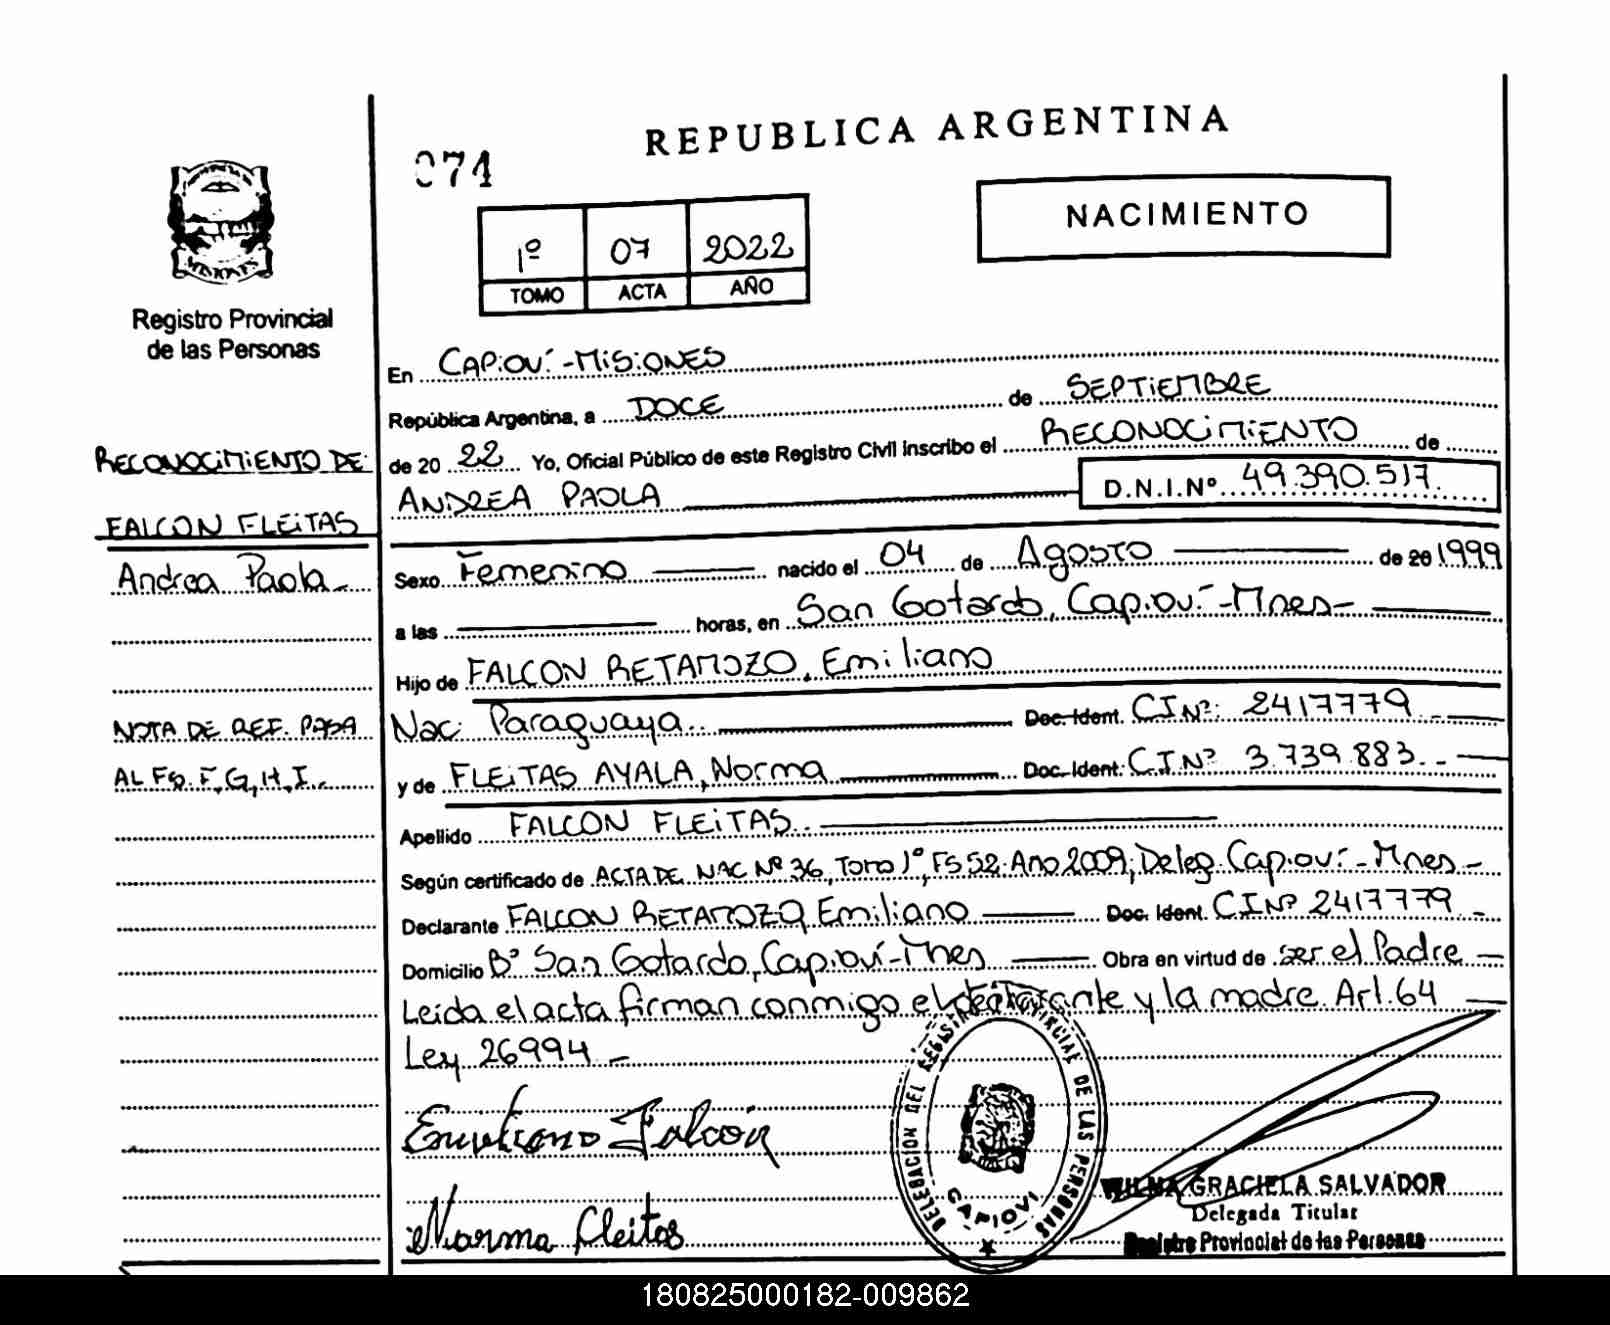 REPUBLICA ARGENTINA
074
NACIMIENTO
1º 07 2022
TOMO ACTA AÑO
MISIONES
Registro Provincial
de las Personas
En CAPiOVí - MiSiONES
República Argentina, a DOCE de SEPTiEMBRE
de 20 22 Yo, Oficial Público de este Registro Civil inscribo el RECONOCiMiENTO de
ANDREA PAOLA D.N.I.Nº 49.390.517.
RECONOCiMiENTO DE
FALCON FLEiTAS
Andrea Paola
Sexo Femenino nacido el 04 de Agosto de 20 1999
a las horas, en San Gotardo, Capioví - Mnes -
Hijo de FALCON RETAMOZO, Emiliano
Nac: Paraguaya.. Doc. Ident. CI Nº: 2417779
y de FLEiTAS AYALA, Norma Doc. Ident. CI Nº 3.739.883
NOTA DE REF. PASA
AL Fs. F, G, H, I.
Apellido FALCON FLEiTAS..
Según certificado de ACTA DE NAC Nº 36, Tomo 1º, Fs 52. Año 2009; Deleg. Capioví - Mnes -
Declarante FALCON RETAMOZO, Emiliano Doc. Ident. CI Nº 2417779
Domicilio Bº San Gotardo, Capioví - Mnes Obra en virtud de ser el Padre
Leida el acta firman conmigo el declarante y la madre. Art. 64
Ley 26994 -
Emiliano Falcon
Norma Fleitas
DELEGACION DEL REGISTRO PROVINCIAL DE LAS PERSONAS
CAPIOVI
WILMA GRACIELA SALVADOR
Delegada Titular
Registro Provincial de las Personas
180825000182-009862